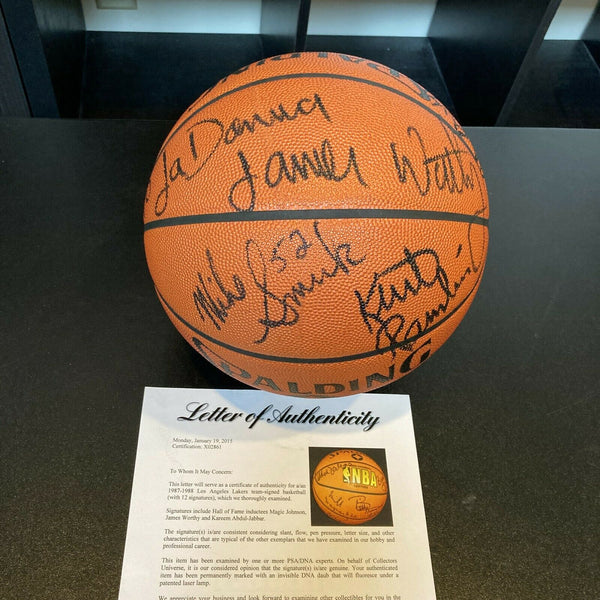 LaDonna
James Worthy
Mike Smrek 52
Kurt Rambis
SPALDING
Letter of Authenticity
Monday, January 19, 2015
Certification: X02861
To Whom It May Concern:
This letter will serve as a certificate of authenticity for a/an
1987-1988 Los Angeles Lakers team-signed basketball
(with 12 signatures), which we thoroughly examined.
Signatures include Hall of Fame inductees Magic Johnson,
James Worthy and Kareem Abdul-Jabbar.
The signature(s) is/are consistent considering slant, flow, pen pressure, letter size, and other
characteristics that are typical of the other exemplars that we have examined in our hobby and
professional career.
This item has been examined by one or more PSA/DNA experts. On behalf of Collectors
Universe, it is our considered opinion that the signature(s) is/are genuine. Your authenticated
item has been permanently marked with an invisible DNA daub that will fluoresce under a
patented laser lamp.
We appreciate your business and look forward to examining other collectibles for you in the
NBA